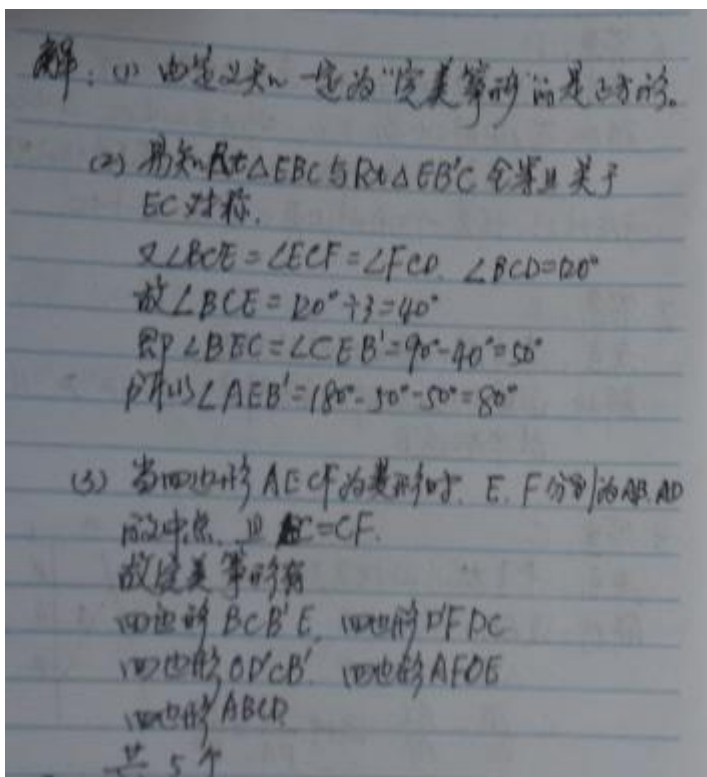 解：(1) 由定义知一定为"完美筝形"的是正方形。
(2) 易知Rt△EBC与Rt△EB'C全等且关于
EC对称.
又∠BCE=∠ECF=∠FCD. ∠BCD=120°
故∠BCE=120°÷3=40°
即∠BEC=∠CEB'=90°-40°=50°
所以∠AEB'=180°-50°-50°=80°
(3) 当四边形AECF为菱形时. E. F分别为AB. AD
的中点. 且 EC=CF.
故完美筝形有
四边形BCB'E. 四边形D'FDC
四边形OD'CB'. 四边形AFOE
四边形ABCD
共5个